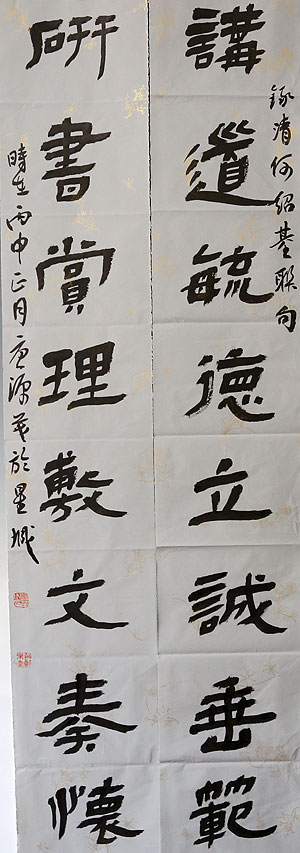 錄清何紹基聯句
講道毓德立誠垂範
研書賞理敷文奏懷
時在丙申正月源於星城